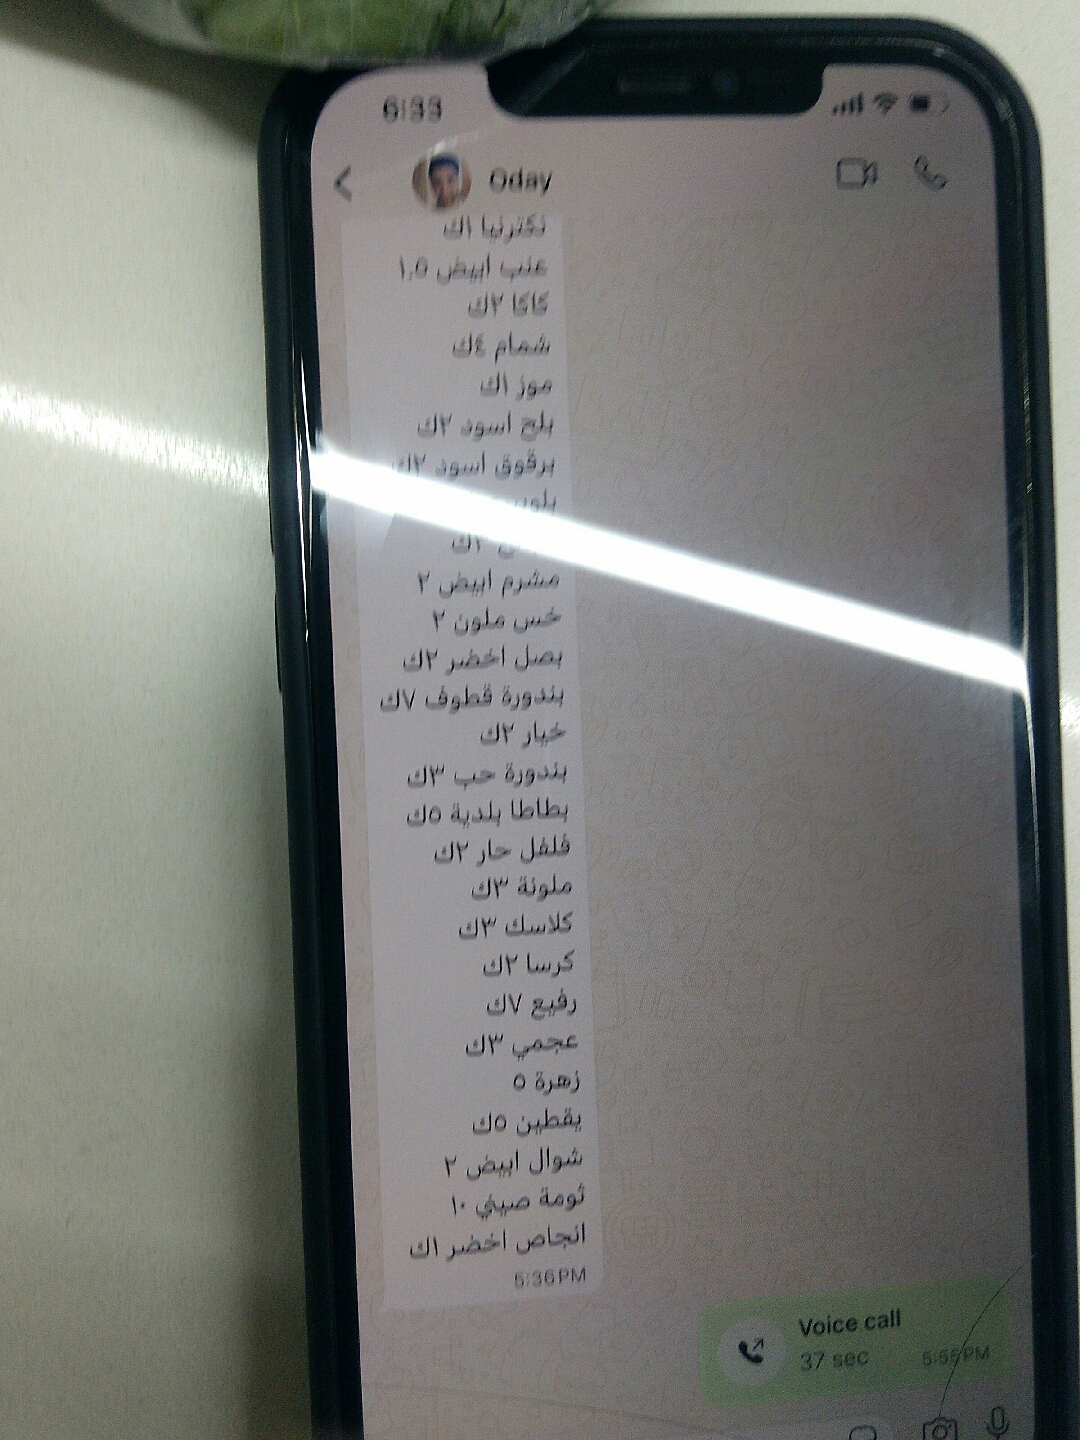 6:33
Oday
نكترنيا ١ك
عنب ابيض ١,٥
كاكا ٢ك
شمام ٤ك
موز ١ك
بلح اسود ٢ك
برقوق اسود ٢ك
٢ك
مشرم ابيض ٢
خس ملون ٢
بصل اخضر ٢ك
بندورة قطوف ٧ك
خيار ٢ك
بندورة حب ٣ك
بطاطا بلدية ٥ك
فلفل حار ٢ك
ملونة ٣ك
كلاسك ٣ك
كرسا ٢ك
رفيع ٧ك
عجمي ٣ك
زهرة ٥
يقطين ٥ك
شوال ابيض ٢
ثومة صيني ١٠
انجاص اخضر ١ك
5:36PM
Voice call
37 sec 5:55PM